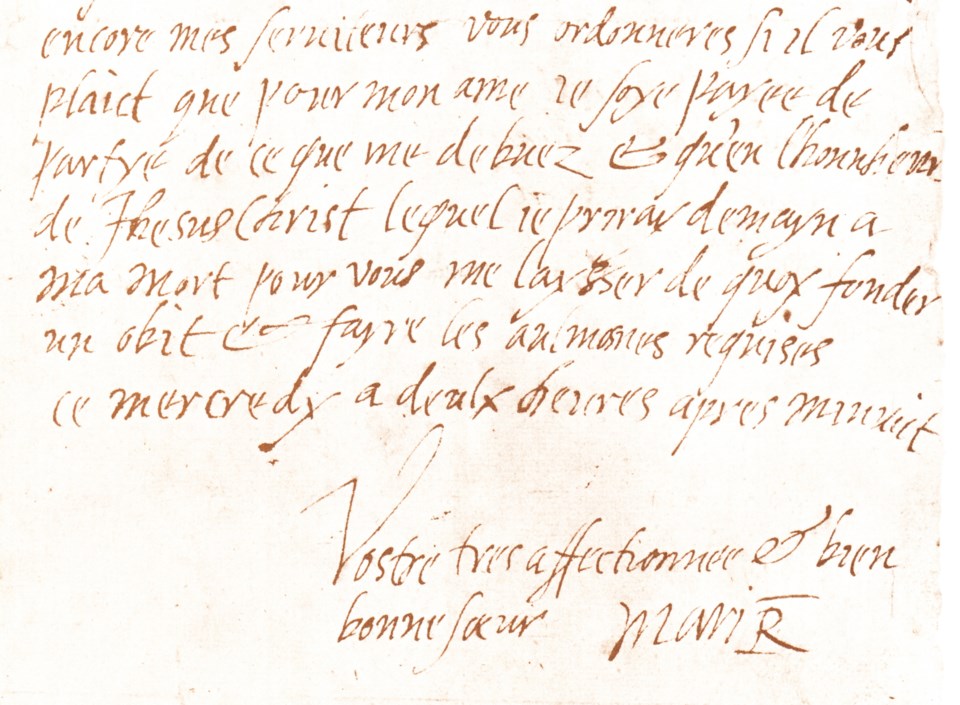 encore mes seruiteurs vous ordonneres si il vous
plaict que pour mon ame ie soye payee de
partye de ce que me debuez & qu'en l'honn
de Jhesus Christ lequel ie priray demayn a
ma mort pour vous me laysser de quoy fonder
un obit & fayre les aulmones requises
ce mercredy a deulx heures apres minuict
Vostre tres affectionnee & bien
bonne sœur Mari R